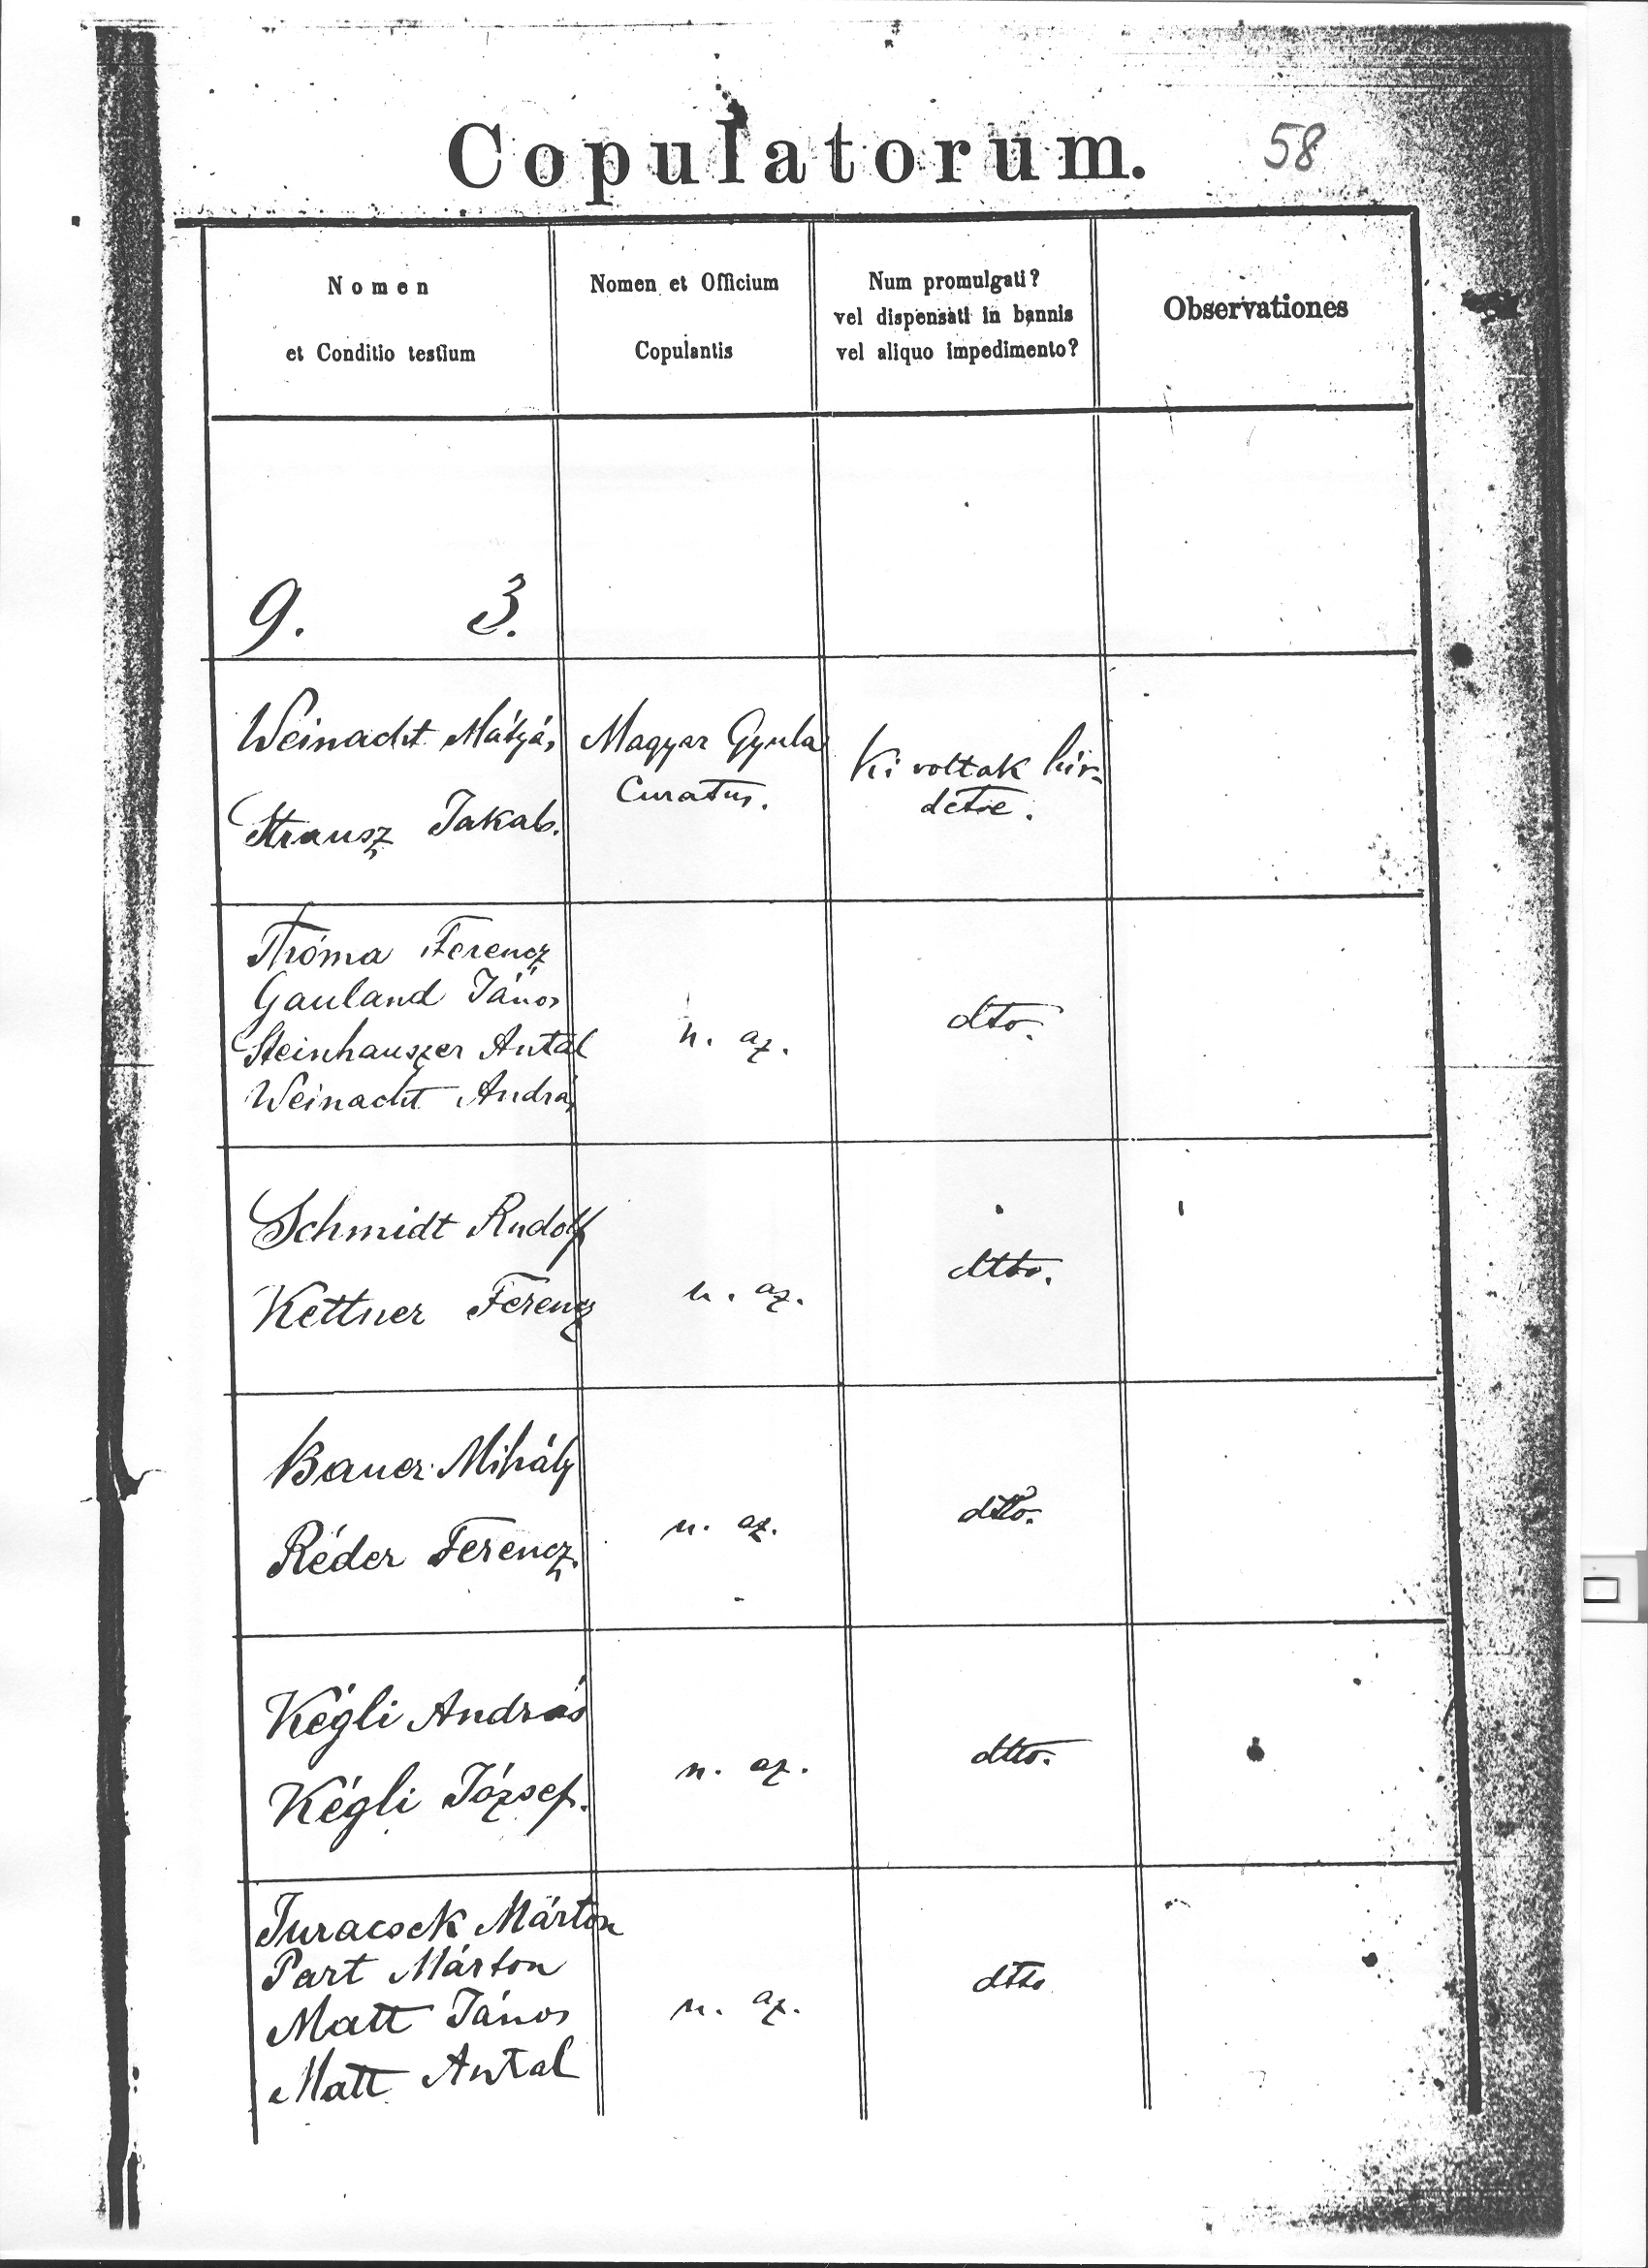 Copulatorum. 58
Nomen
et Conditio testium
Nomen et Officium
Copulantis
Num promulgati?
vel dispensati in bannis
vel aliquo impedimento?
Observationes
9. 3.
Weinacht Mátyás
Strausz Jakab.
Magyar Gyula
Curatus.
Ki voltak hir-
detve.
Tróma Ferencz
Gauland János
Steinhauszer Antal
Weinacht András
u. az.
dto.
Schmidt Rudolf
Kettner Ferencz
u. az.
dtto.
Bauer Mihály
Réder Ferencz.
u. az.
dtto.
Kégli András
Kégli József.
u. az.
dtto.
Juracsek Márton
Part Márton
Matt János
Matt Antal
u. az.
dtto